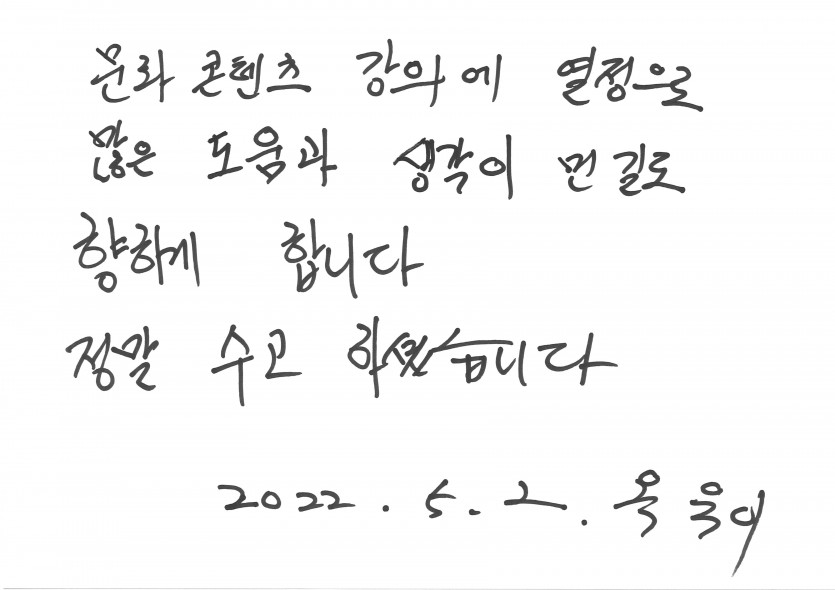 문화 콘텐츠 강의에 열정으로
많은 도움과 생각이 먼 길로
향하게 합니다
정말 수고 하셨습니다
2022. 5. 2. 옥